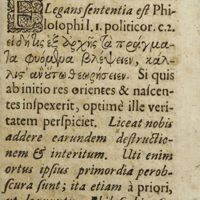 ELegans sententia est Phi-
losophi l. 1. politicor. c. 2.
εἰ δή τις ἐξ ἀρχῆς τὰ πράγμα-
τα φυόμενα βλέψειεν, καλ-
λιστ' ἂν οὕτω θεωρήσειεν. Si quis
ab initio res orientes & nascen-
tes inspexerit, optimè ille veri-
tatem perspiciet. Liceat nobis
addere earundem destructio-
nem & interitum. Uti enim
ortus ipsius primordia perob-
scura sunt; ita etiam à priori,